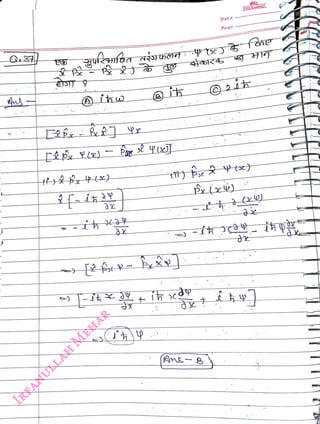 Date
Page
Q.37 एक सुपरिभाषित तरंगफलन ψ(x) के लिए
x̂ P̂x - P̂x x̂) के का मान
होगा ?
Ans - Ⓐ iħω Ⓑ iħ Ⓒ 2iħ
[x̂ P̂x - P̂x x̂] ψx
[x̂ P̂x ψ(x) - P̂x x̂ ψ(x)]
(i) x̂ P̂x ψ(x)
x̂ [-iħ ∂ψ/∂x]
= -iħ x ∂ψ/∂x
(ii) P̂x x̂ ψ(x)
P̂x (xψ)
-iħ ∂(xψ)/∂x
⇒ -iħ x ∂ψ/∂x - iħψ ∂x/∂x
⇒ [x̂ P̂x ψ - P̂x x̂ ψ]
⇒ [-iħ x ∂ψ/∂x + iħ x ∂ψ/∂x + iħψ]
⇒ iħ ψ
Ans - B
IRFANULLAH MEHAR